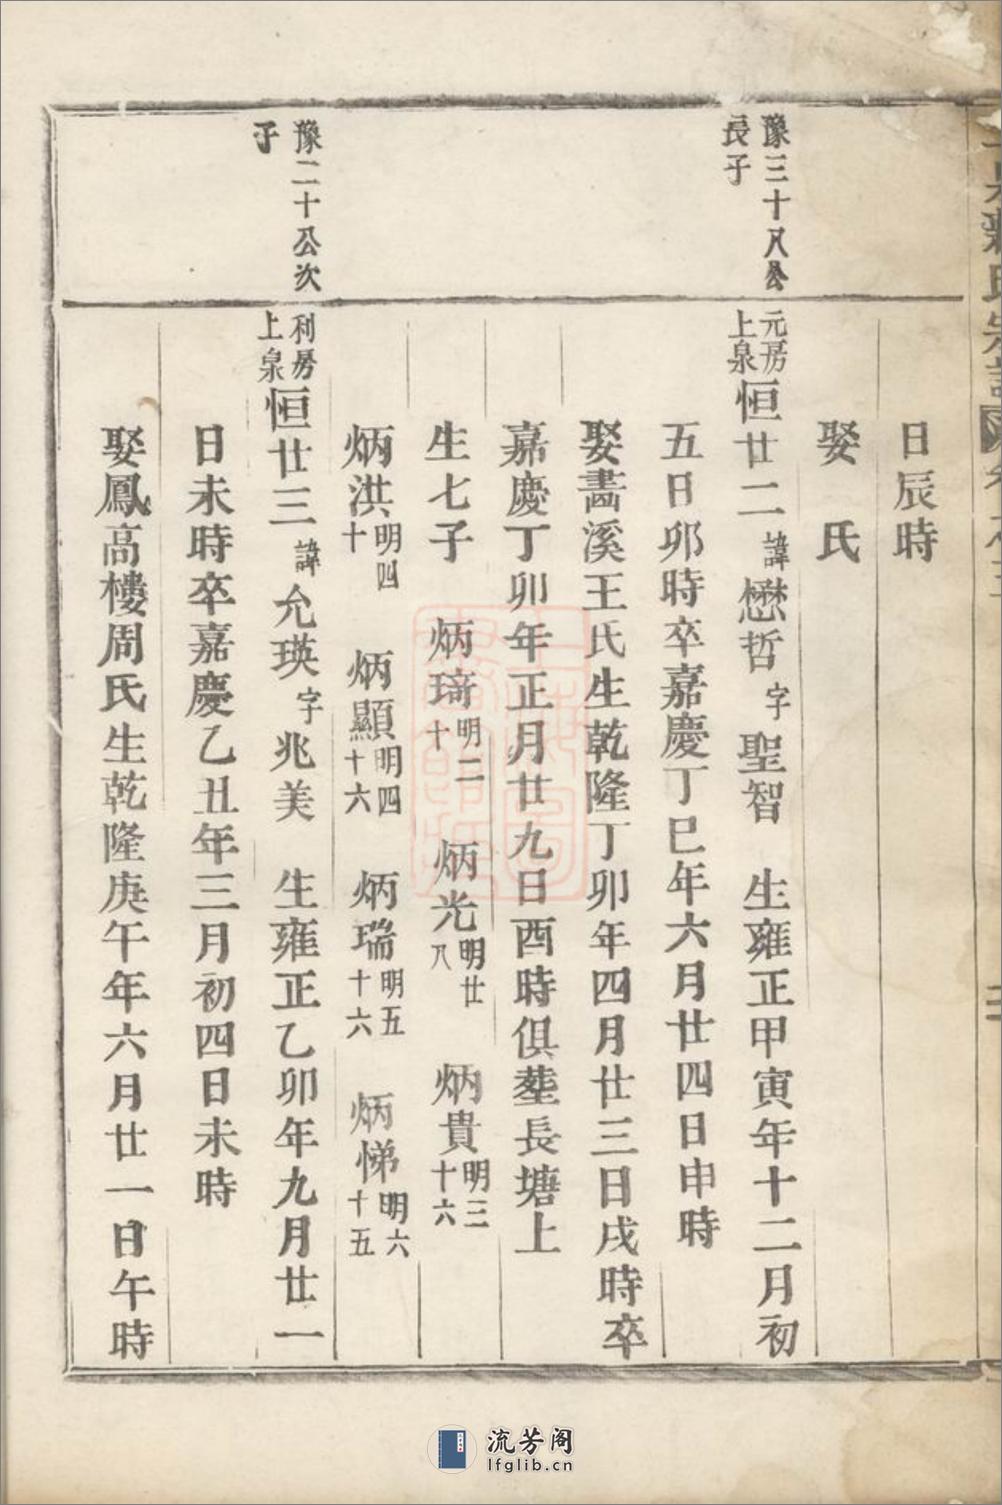 日辰時
娶　氏
豫三十八公
長子
元房
上泉
恒廿二諱懋哲字聖智　生雍正甲寅年十二月初
五日卯時卒嘉慶丁巳年六月廿四日申時
娶畵溪王氏生乾隆丁卯年四月廿三日戌時卒
嘉慶丁卯年正月廿九日酉時俱塟長塘上
生七子　炳琦明二十　炳光明廿八　炳貴明三十六
炳洪明四十　炳顯明四十六　炳瑞明五十六　炳悌明六十五
豫二十公次
子
利房
上泉
恒廿三諱允瑛字兆美　生雍正乙卯年九月廿一
日未時卒嘉慶乙丑年三月初四日未時
娶鳳高樓周氏生乾隆庚午年六月廿一日午時
流芳阁
lfglib.cn